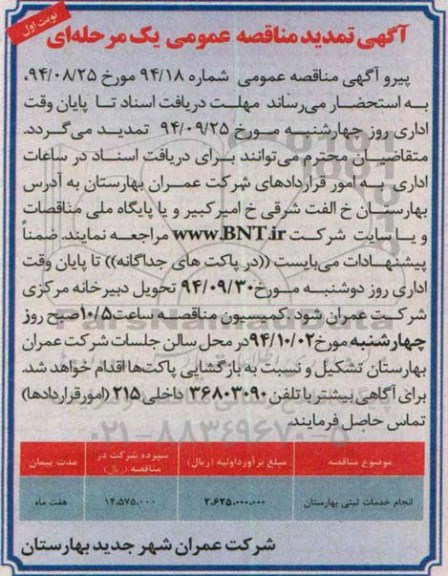 نوبت اول
آگهی تمدید مناقصه عمومی یک مرحله‌ای
پیرو آگهی مناقصه عمومی شماره ۹۴/۱۸ مورخ ۹۴/۰۸/۲۵،
به استحضار می‌رساند مهلت دریافت اسناد تا پایان وقت
اداری روز چهارشنبه مورخ ۹۴/۰۹/۲۵ تمدید می‌گردد.
متقاضیان محترم می‌توانند برای دریافت اسناد در ساعات
اداری به امور قراردادهای شرکت عمران بهارستان به آدرس
بهارستان خ الفت شرقی خ امیرکبیر و یا پایگاه ملی مناقصات
و یا سایت شرکت www.BNT.ir مراجعه نمایند. ضمناً
پیشنهادات می‌بایست ((در پاکت های جداگانه)) تا پایان وقت
اداری روز دوشنبه مورخ ۹۴/۰۹/۳۰ تحویل دبیرخانه مرکزی
شرکت عمران شود. کمیسیون مناقصه ساعت ۱۰/۵ صبح روز
چهارشنبه مورخ ۹۴/۱۰/۰۲ در محل سالن جلسات شرکت عمران
بهارستان تشکیل و نسبت به بازگشایی پاکت‌ها اقدام خواهد شد.
برای آگاهی بیشتر با تلفن ۳۶۸۰۳۰۹۰ داخلی ۲۱۵ (امور قراردادها)
تماس حاصل فرمایند.
ParsNamadData
۰۲۱-۸۸۳۴۹۶۷۰-۵
موضوع مناقصه مبلغ برآورد اولیه (ریال) سپرده شرکت در مناقصه (ریال) مدت پیمان
انجام خدمات ثبتی بهارستان ۲.۶۲۵.۰۰۰.۰۰۰ ۱۴.۵۷۵.۰۰۰ هفت ماه
شرکت عمران شهر جدید بهارستان